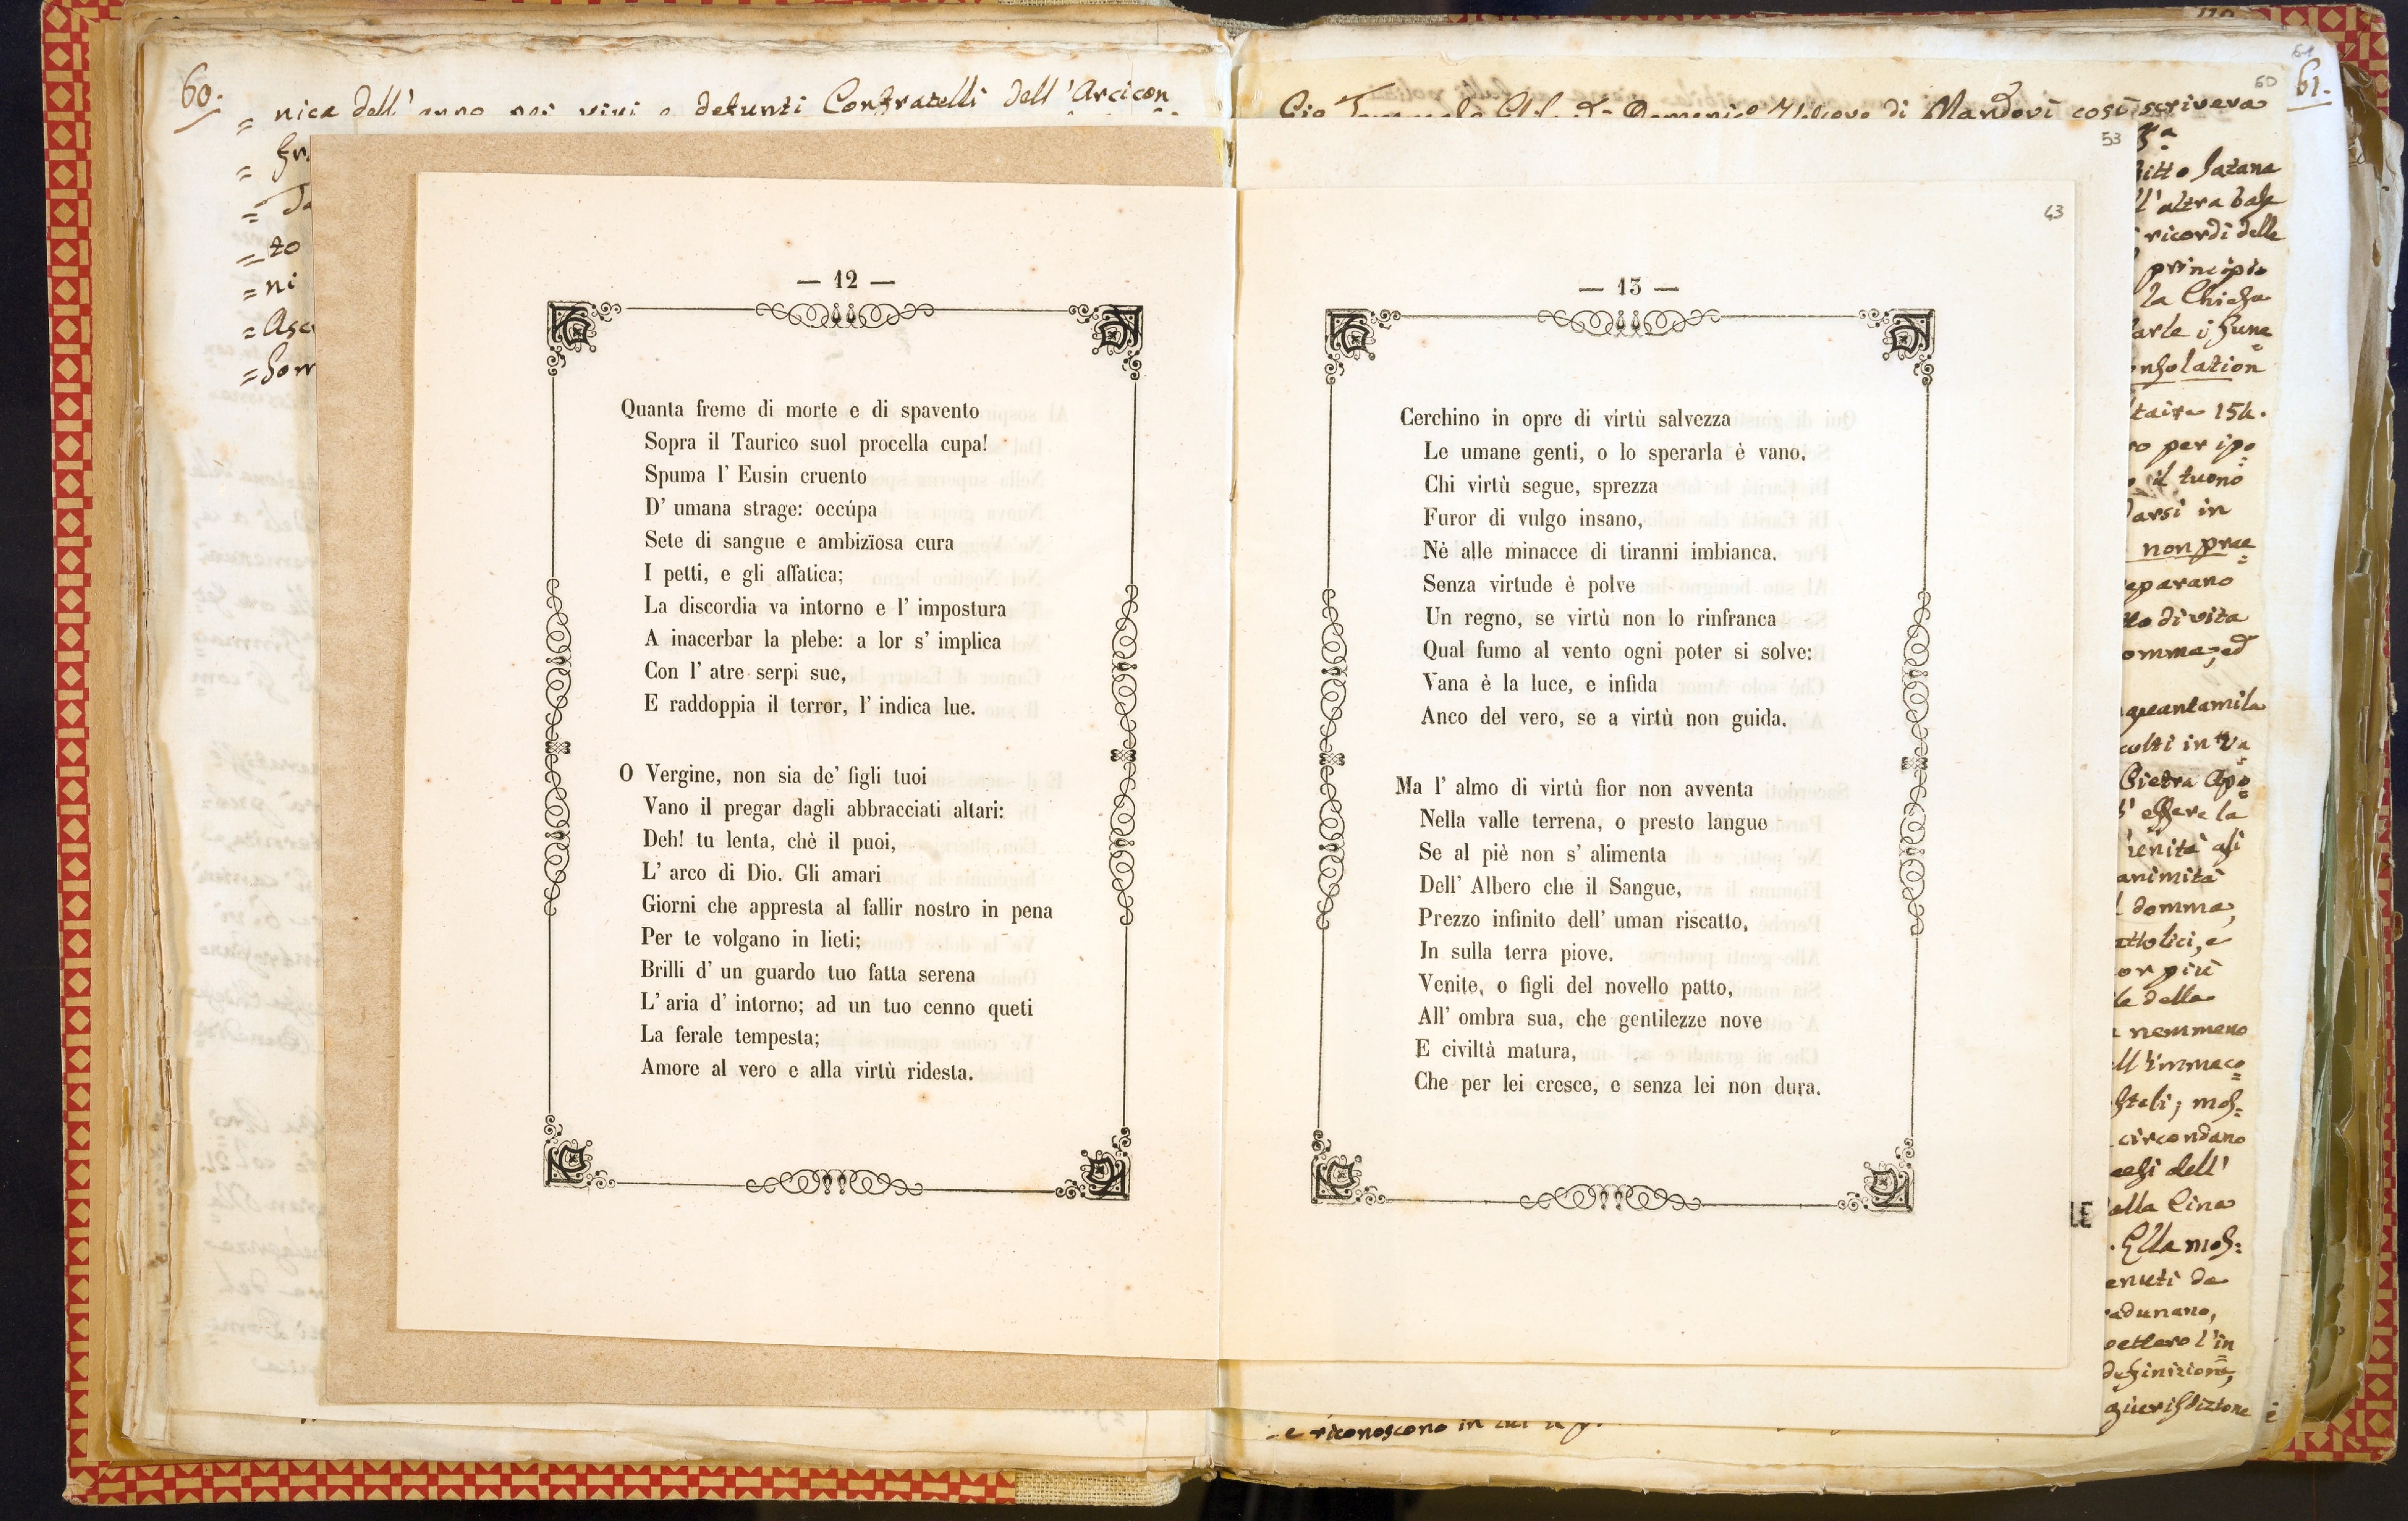 60.
= nica dell' anno pei vivi e defunti Confratelli dell' Arcicon
=
=
= to
= ni
=
=
— 12 —
Quanta freme di morte e di spavento
Sopra il Taurico suol procella cupa!
Spuma l' Eusin cruento
D' umana strage: occúpa
Sete di sangue e ambizïosa cura
I petti, e gli affatica;
La discordia va intorno e l' impostura
A inacerbar la plebe: a lor s' implica
Con l' atre serpi sue,
E raddoppia il terror, l' indica lue.
O Vergine, non sia de' figli tuoi
Vano il pregar dagli abbracciati altari:
Deh! tu lenta, chè il puoi,
L' arco di Dio. Gli amari
Giorni che appresta al fallir nostro in pena
Per te volgano in lieti;
Brilli d' un guardo tuo fatta serena
L' aria d' intorno; ad un tuo cenno queti
La ferale tempesta;
Amore al vero e alla virtù ridesta.
61
60
61.
Domenico Vescovo di Mondovì così scriveva
53
43
— 13 —
Cerchino in opre di virtù salvezza
Le umane genti, o lo sperarla è vano.
Chi virtù segue, sprezza
Furor di vulgo insano,
Nè alle minacce di tiranni imbianca.
Senza virtude è polve
Un regno, se virtù non lo rinfranca
Qual fumo al vento ogni poter si solve:
Vana è la luce, e infida
Anco del vero, se a virtù non guida.
Ma l' almo di virtù fior non avventa
Nella valle terrena, o presto langue
Se al piè non s' alimenta
Dell' Albero che il Sangue,
Prezzo infinito dell' uman riscatto,
In sulla terra piove.
Venite, o figli del novello patto,
All' ombra sua, che gentilezze nove
E civiltà matura,
Che per lei cresce, e senza lei non dura.
LE
Satana
l' altra
ricordi delle
principio
la Chiesa
154.
per ipo
il tuono
darsi in
non prae
eparano
di vita
omma; ed
colti in Va
Pietra Apo
essere la
animità
domma,
attolici, e
or più
della
nemmeno
ell' immaco
circondano
dell'
alla
. Ella mos=
enuti da
adunano,
l' in
definizione,
giurisdizione
e riconoscono in